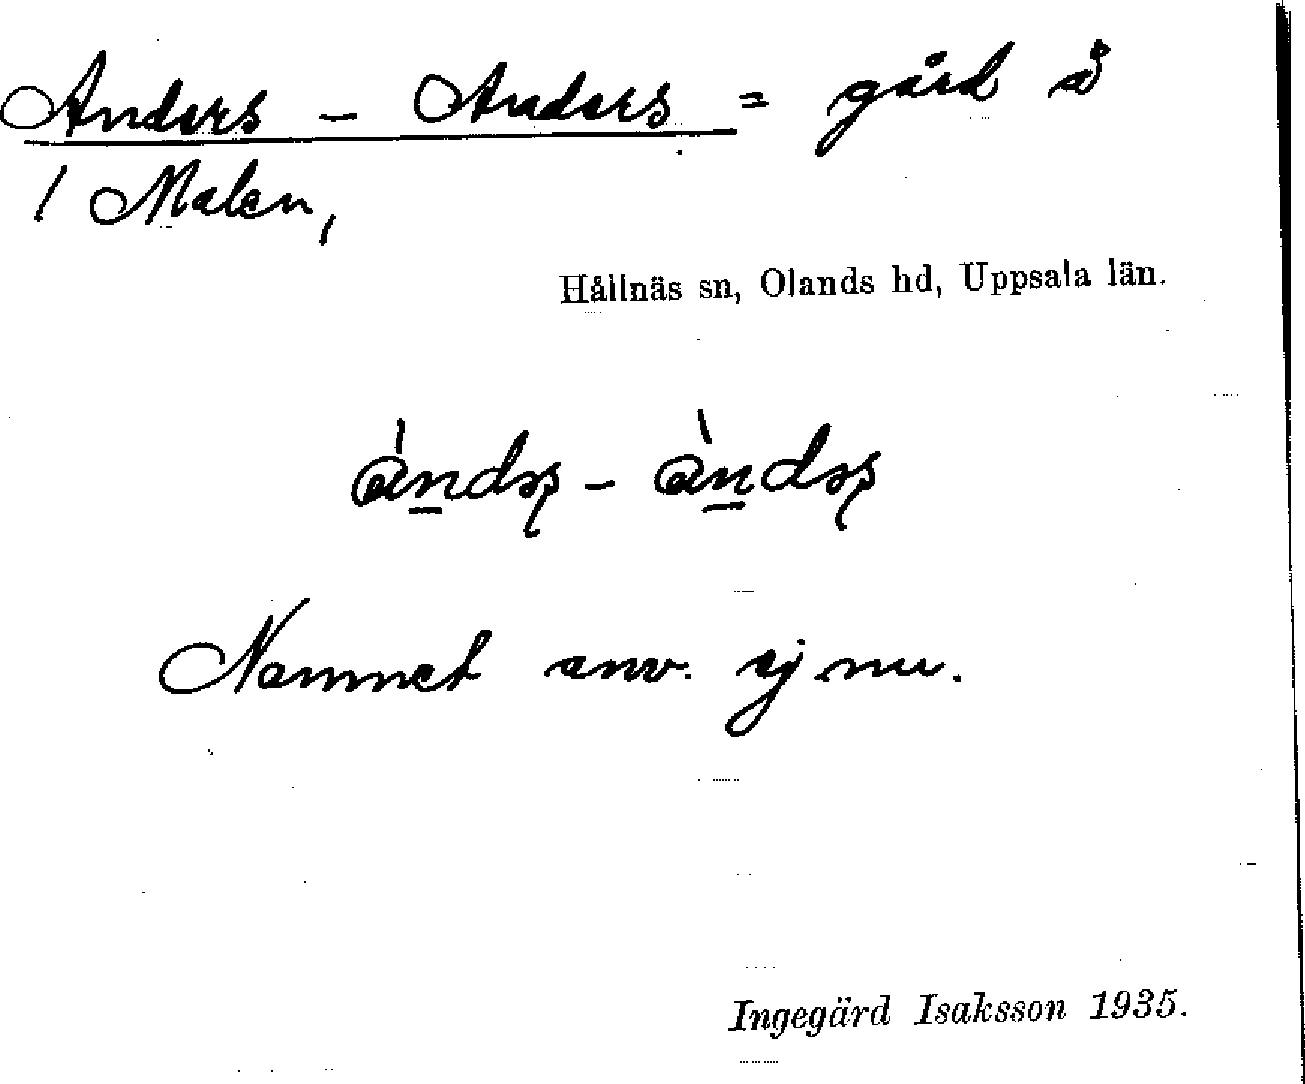 Anders - Anders = gård å
/ Malen,
Hållnäs sn, Olands hd, Uppsala län.
àndəʂ - àndəʂ
Namnet anv. ej nu.
Ingegärd Isaksson 1935.